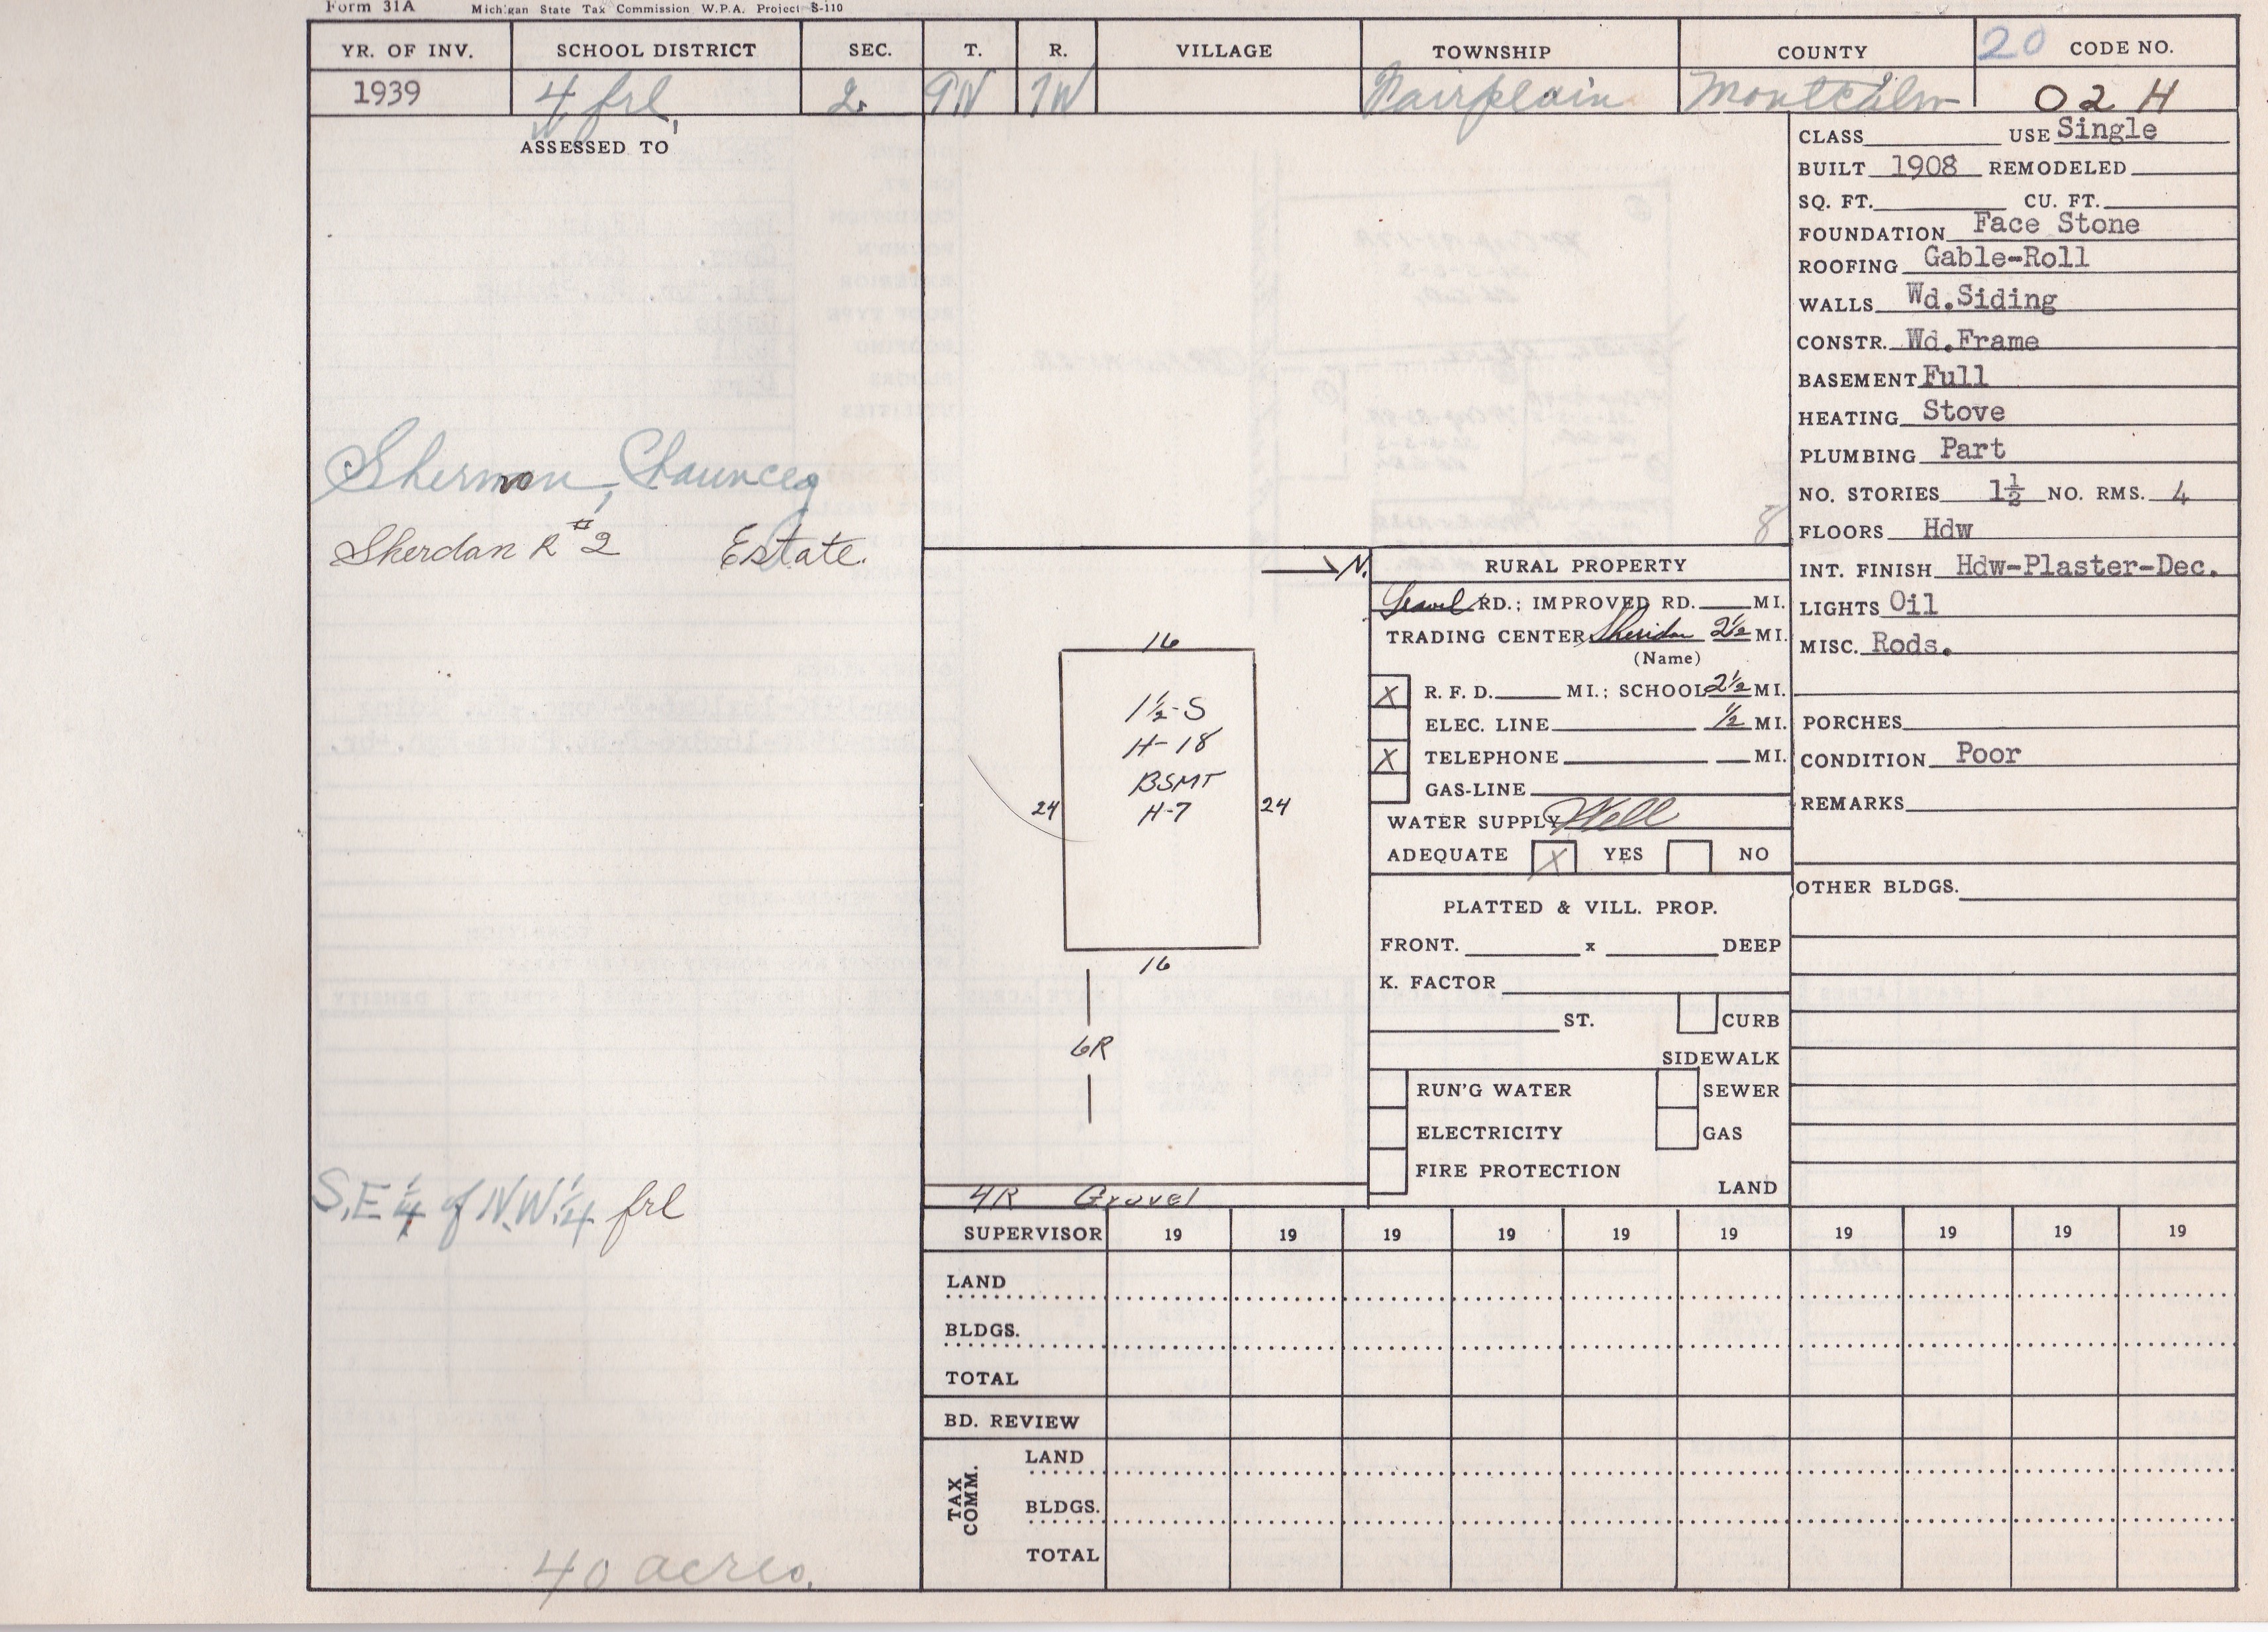 Form 31A Michigan State Tax Commission W.P.A. Project S-110
YR. OF INV. SCHOOL DISTRICT SEC. T. R. VILLAGE TOWNSHIP COUNTY 20 CODE NO.
1939 4 frl, 2. 9N 7W Fairplain Montcalm 02 H
ASSESSED TO
Sherman, Chauncey
Sherdan R #2 Estate.
S.E 1/4 of N.W. 1/4 frl
40 acres.
8
→ N.
16
1½-S
H-18
BSMT
H-7
24 24
16
6R
4R Gravel
RURAL PROPERTY
Gravel RD.; IMPROVED RD. MI.
TRADING CENTER Sheridan 2½ MI.
(Name)
X R. F. D. MI.; SCHOOL 2½ MI.
ELEC. LINE ½ MI.
X TELEPHONE MI.
GAS-LINE
WATER SUPPLY Well
ADEQUATE X YES NO
PLATTED & VILL. PROP.
FRONT. x DEEP
K. FACTOR
ST. CURB
SIDEWALK
RUN'G WATER SEWER
ELECTRICITY GAS
FIRE PROTECTION
LAND
CLASS USE Single
BUILT 1908 REMODELED
SQ. FT. CU. FT.
FOUNDATION Face Stone
ROOFING Gable-Roll
WALLS Wd.Siding
CONSTR. Wd.Frame
BASEMENT Full
HEATING Stove
PLUMBING Part
NO. STORIES 1½ NO. RMS. 4
FLOORS Hdw
INT. FINISH Hdw-Plaster-Dec.
LIGHTS Oil
MISC. Rods.
PORCHES
CONDITION Poor
REMARKS
OTHER BLDGS.
SUPERVISOR 19 19 19 19 19 19 19 19 19 19
LAND
BLDGS.
TOTAL
BD. REVIEW
TAX COMM.
LAND
BLDGS.
TOTAL